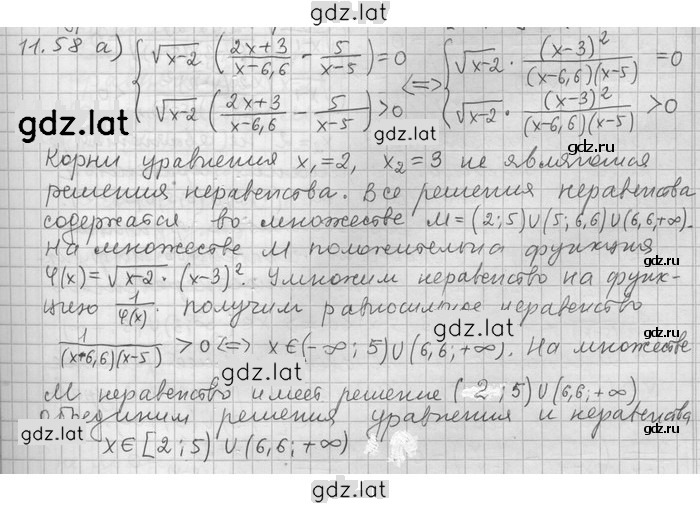 gdz.lat
11.58 а) { √(x-2) ( (2x+3)/(x-6,6) - 5/(x-5) ) = 0 <=> { √(x-2) · (x-3)²/((x-6,6)(x-5)) = 0
√(x-2) ( (2x+3)/(x-6,6) - 5/(x-5) ) > 0 √(x-2) · (x-3)²/((x-6,6)(x-5)) > 0
gdz.lat gdz.lat
gdz.lat gdz.lat
Корни уравнения x₁=2, x₂=3 не являются
решения неравенства. Все решения неравенства
содержатся во множестве М=(2;5)∪(5;6,6)∪(6,6;+∞).
gdz.lat
На множестве М положительна функция
φ(x)=√(x-2) · (x-3)². Умножим неравенство на функ-
gdz.lat
цию 1/φ(x). получим равносильное неравенство
gdz.lat
1/((x+6,6)(x-5)) > 0 <=> x∈(-∞; 5)∪(6,6;+∞). На множестве
gdz.lat
М неравенство имеет решение (2;5)∪(6,6;+∞)
объединим решения уравнения и неравенства
gdz.lat gdz.lat
x∈[2;5)∪(6,6;+∞)
gdz.lat